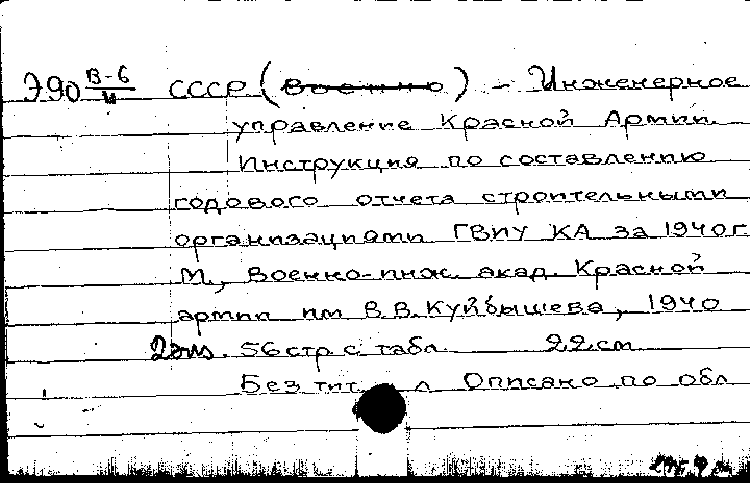 Э90 В-6/И СССР (Военно) - Инженерное
управление Красной Армии.
Инструкция по составлению
годового отчета строительными
организациями ГВИУ КА за 1940 г.
М., Военно-инж. акад. Красной
армии им В.В. Куйбышева, 1940
56 стр. с табл. 22 см
Без тит. л Описано по обл